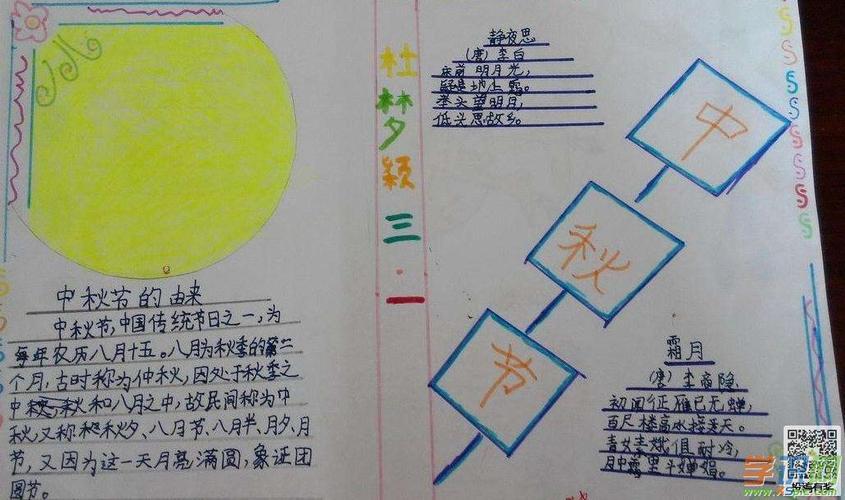 中秋节的由来
中秋节,中国传统节日之一,为
每年农历八月十五。八月为秋季的第二
个月,古时称为仲秋,因处于秋季之
中秋和八月之中,故民间称为中
秋,又称秋夕、八月节、八月半、月夕、月
节,又因为这一天月亮满圆,象证团
圆节。
杜梦颖三·一
静夜思
(唐)李白
床前明月光,
疑是地上霜。
举头望明月,
低头思故乡。
中
秋
节
霜月
(唐)李商隐
初闻征雁已无蝉,
百尺楼高水接天。
青女素娥俱耐冷,
月中霜里斗婵娟。